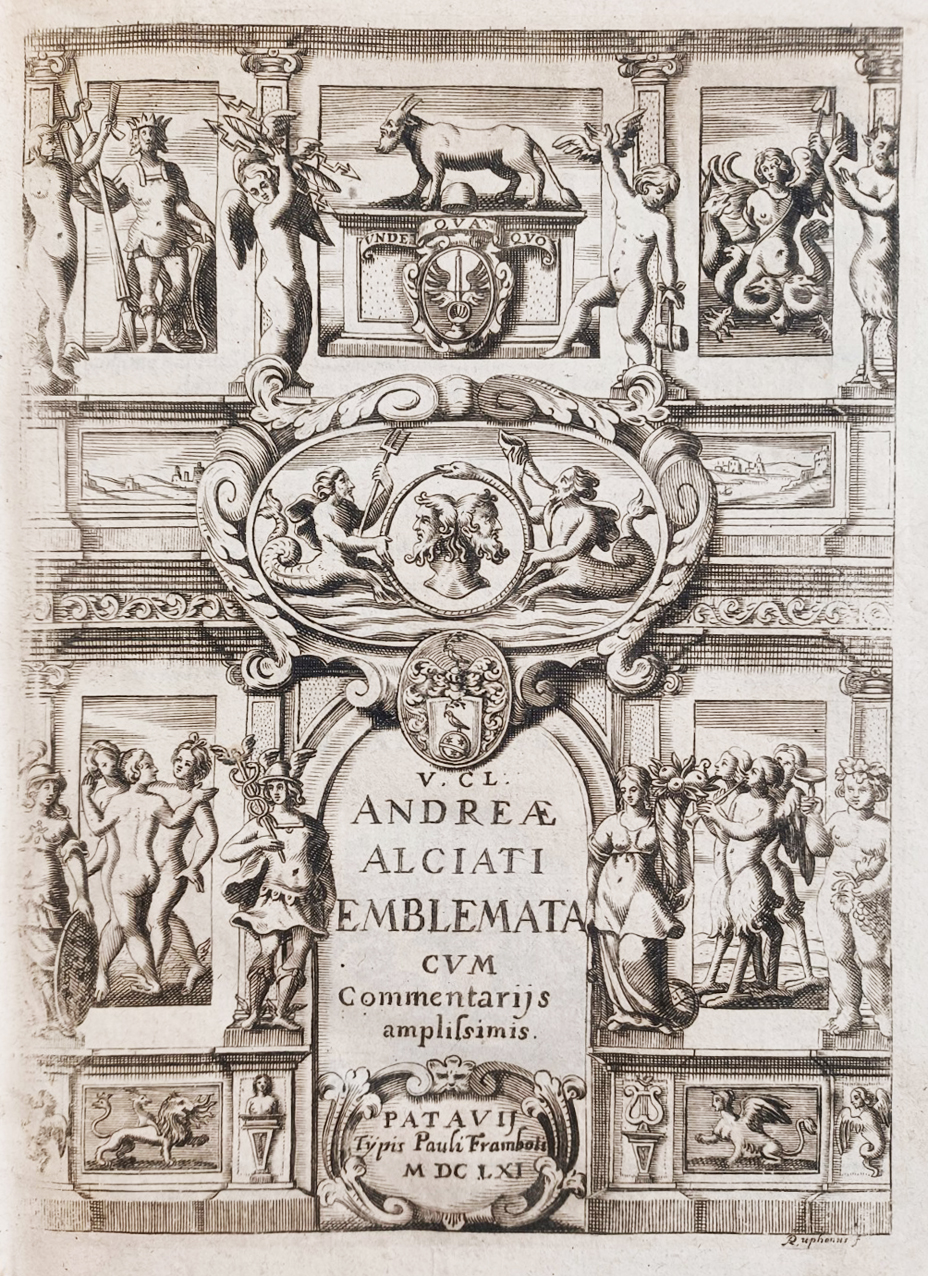 VNDE QVA QVO
V. CL.
ANDREÆ
ALCIATI
EMBLEMATA
CVM
Commentarijs
ampliſsimis.
PATAVIJ
Typis Pauli Frambotti
M DC LXI